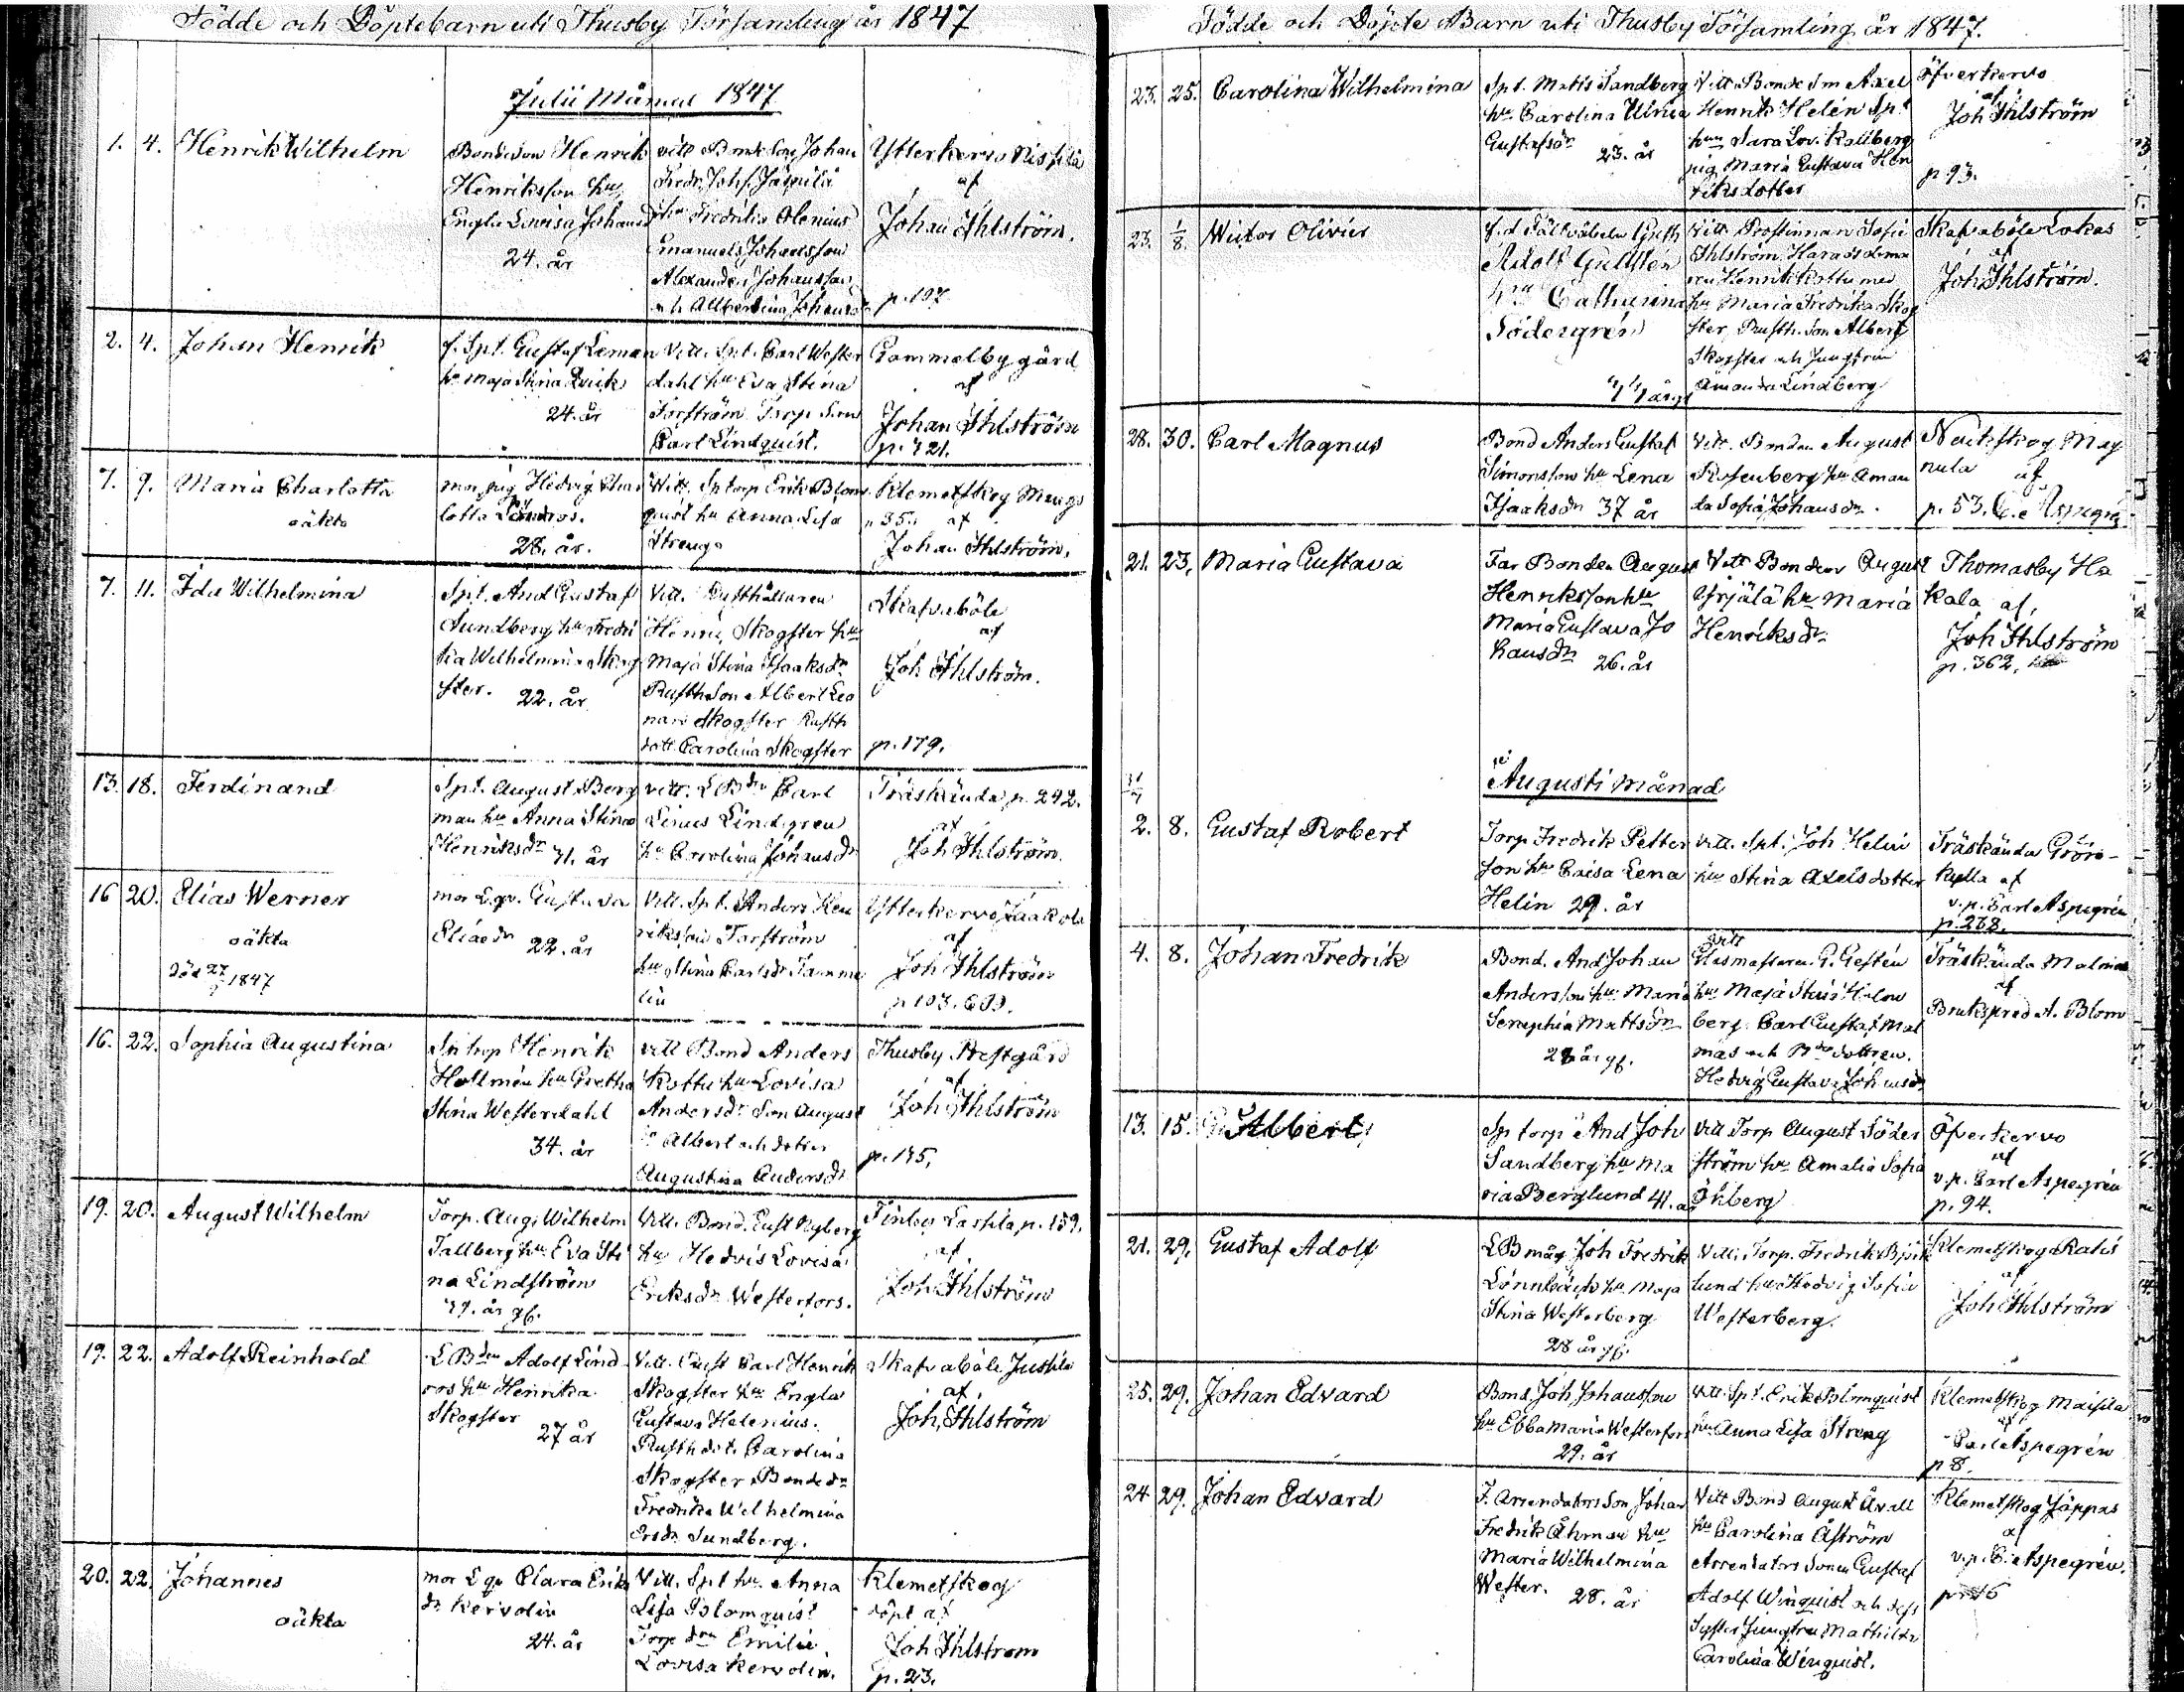 Födde och Döpte barn uti Thusby Församling år 1847
Julii Månad 1847
1. 4. Henrik Wilhelm
Bondeson Henrik
Henriksson hu
Engla Lovisa Johansd
24. år
Vitt. Bondeson Johan
Fredr. Johs. Jäpilä
hu Fredrika Alenius
Emanuel Johansson
Alexander Johansson
och Albertina Johansd
Ytterkervo Nissilä
af
Johan Ihlström.
p. 107
2. 4. Johan Henrik
f. Spt. Gustaf Leman
hu Maja Stina Qvick
24. år
Vitt. Spt. Carl Wester
dahl hu Eva Stina
Forström Torp Son
Carl Lindquist.
Gammelby gård
af
Johan Ihlström
p. 421.
7. 9. Maria Charlotta
oäkta
mor pig Hedvig Char
lotta
28. år.
Vitt. Sptorp Erik Blom
quist hu Anna Lisa
Streng
Klemetskog Mangs
p 35. af
Johan Ihlström.
7. 11. Ida Wilhelmina
Spt. And Gustaf
Sundberg hu Fredri
ka Wilhelmina Skog
ster. 22. år
Vitt. Rusthållaren
Henric Skogster hu
Maja Stina Isaaksdr
Rusth Son Albert Leo
nard Skogster Rusth
dott. Carolina Skogster
Skafvaböle
af
Joh Ihlström.
p. 179.
13. 18. Ferdinand
Spt. August Berg
man hu Anna Stina
Henriksdr 41. år
Vitt. LBdn Carl
Linus Lindgren
hu Carolina Johansdr
Träskända p. 242.
af
Joh Ihlström
16 20. Elias Werner
oäkta
död 27/9 1847
mor Lqv. Gustava
Eliaedr 22. år
Vitt. Spt. Anders Hen
riksson Torström
hu Stina Carlsdr Tamme
lin
Ytterkervo Jaakola
af
Joh Ihlström
p 103. 609.
16. 22. Sophia Augustina
Sptorp Henrik
Hollmén hu Gretha
Stina Westerdahl
34. år
Vitt Bond Anders
Rottu hu Lovisa
Andersdr Son August
Albert och dotter
Augustina Andersdr
Thusby Prestgård
af
Joh Ihlström
p. 195.
19. 20. August Wilhelm
Torp. Aug. Wilhelm
Tallberg hu Eva Sti
na Lindström
41. år gf.
Vitt. Bond. Gust Nyberg
hu Hedvis Lovisa
Eriksdr Westerfors.
Finby Lassila p. 159.
af
Joh Ihlström
19. 22. Adolf Reinhold
LBden Adolf Lind
roos hu Henrika
Skogster
27 år
Vitt. Rust Carl Henrik
Skogster hu Engla
Gustava Helenius.
Rusth dott. Carolina
Skogster Bondedr
Fredrika Wilhelmina
Ersdr Sundberg.
Skafvaböle Jussila
af
Joh. Ihlström
20. 22. Johannes
oäkta
mor Lqv Clara Eriks
dr Kervolin
24. år
Vitt. Spt hu Anna
Lisa Blomquist
Torp drn Emilie
Lovisa Kervolin.
Klemetskog
döpt af
Joh Ihlström
p. 23.
Födde och Döpte Barn uti Thusby Församling år 1847.
23. 25. Carolina Wilhelmina
Spt. Matts Sandberg
hu. Carolina Ulrica
Gustafsdr
23. år
Vitt. Bonde Sm Axel
Henrik Helén Spt
hun Sara Lov. Kallberg
pig Maria Gustava Hen
riksdotter
Öfverkervo
af
Joh Ihlström
p. 93.
23. 1/8. Wictor Olivier
f.d Fältväbeln Gusth
Adolf Gullsten
hu Catharina
Södergrén
44 år gf
Vitt. Prostinnan Sofie
Ihlström. Haradsdoma
ren Henrik Rottu med
hu Maria Fredrika Skog
ster, Rusth. Son Albert
Skogster och Jungfrun
Amanda Lindberg
Skafvaböle Lokas
af
Joh Ihlström.
28. 30. Carl Magnus
Bond Anders Gustaf
Simonsson hu Lena
Isaaksdr 37 år
Vitt. Bonden August
Rosenberg hu Aman
da Sofia Johansdr.
Nuckskog Mag
nula af
p. 53. C. Aspegrén
21. 23. Maria Gustava
Far Bonden August
Henriksson hu
Maria Gustava Jo
hansdn 26. år
Vitt Bonden August
Yrjälä hu Maria
Henriksdr
Thomasby Ha
kala af,
Joh Ihlström
p. 362.
Augusti Månad
31/7
2. 8. Gustaf Robert
Torp Fredrik Petter
son hu Caisa Lena
Helin 29. år
Vitt. Spt. Joh Helin
hu Stina Axelsdotter
Träskända Grön-
kulla af
v.p. Carl Aspegrén
p. 268.
4. 8. Johan Fredrik
Bond. And Johan
Andersson hu Maria
Seraphia Mattsdr
28 år gf.
Vitt
Glasmästaren G. Gestén
hu Maja Stina Holm
berg. Carl Gustaf Mal
mas och Bde dottren.
Hedvig Gustava Johansdr
Träskända Malmis
af
Brukspred A. Blom
13. 15. Albert
Sp torp And Joh
Sandberg hu Ma
ria Berglund 41. år
Vitt Torp August Söder
ström hu Amalia Sofia
Öhberg
Öfverkervo
af
v.p. Carl Aspegrén
p. 94.
21. 29. Gustaf Adolf
LB måg Joh Fredrik
Lönnbäck hu Maja
Stina Westerberg
28 år gf.
Vitt. Torp. Fredrik Björk
lund hu Hedvig Sofia
Westerberg.
Klemetskog Ratis
af
Joh Ihlström
25. 29. Johan Edvard
Bond. Joh. Johansson
hu Ebba Maria Westerfors
29. år
Vitt. Spt. Erik Blomquist
hu Anna Lisa Streng
Klemetskog Maisila
af
Carl Aspegrén
p 8.
24 29. Johan Edvard
F. Arrendators Son Johan
Fredrik Åhman hu
Maria Wilhelmina
Wester. 28. år
Vitt Bond August Avell
hu Carolina Åström
Arrendators Sonen Gustaf
Adolf Winquist och dess
Syster Jungfru Mathilda
Carolina Winquist.
Klemetskog Jäppas
af
v.p. C. Aspegrén.
p. 46